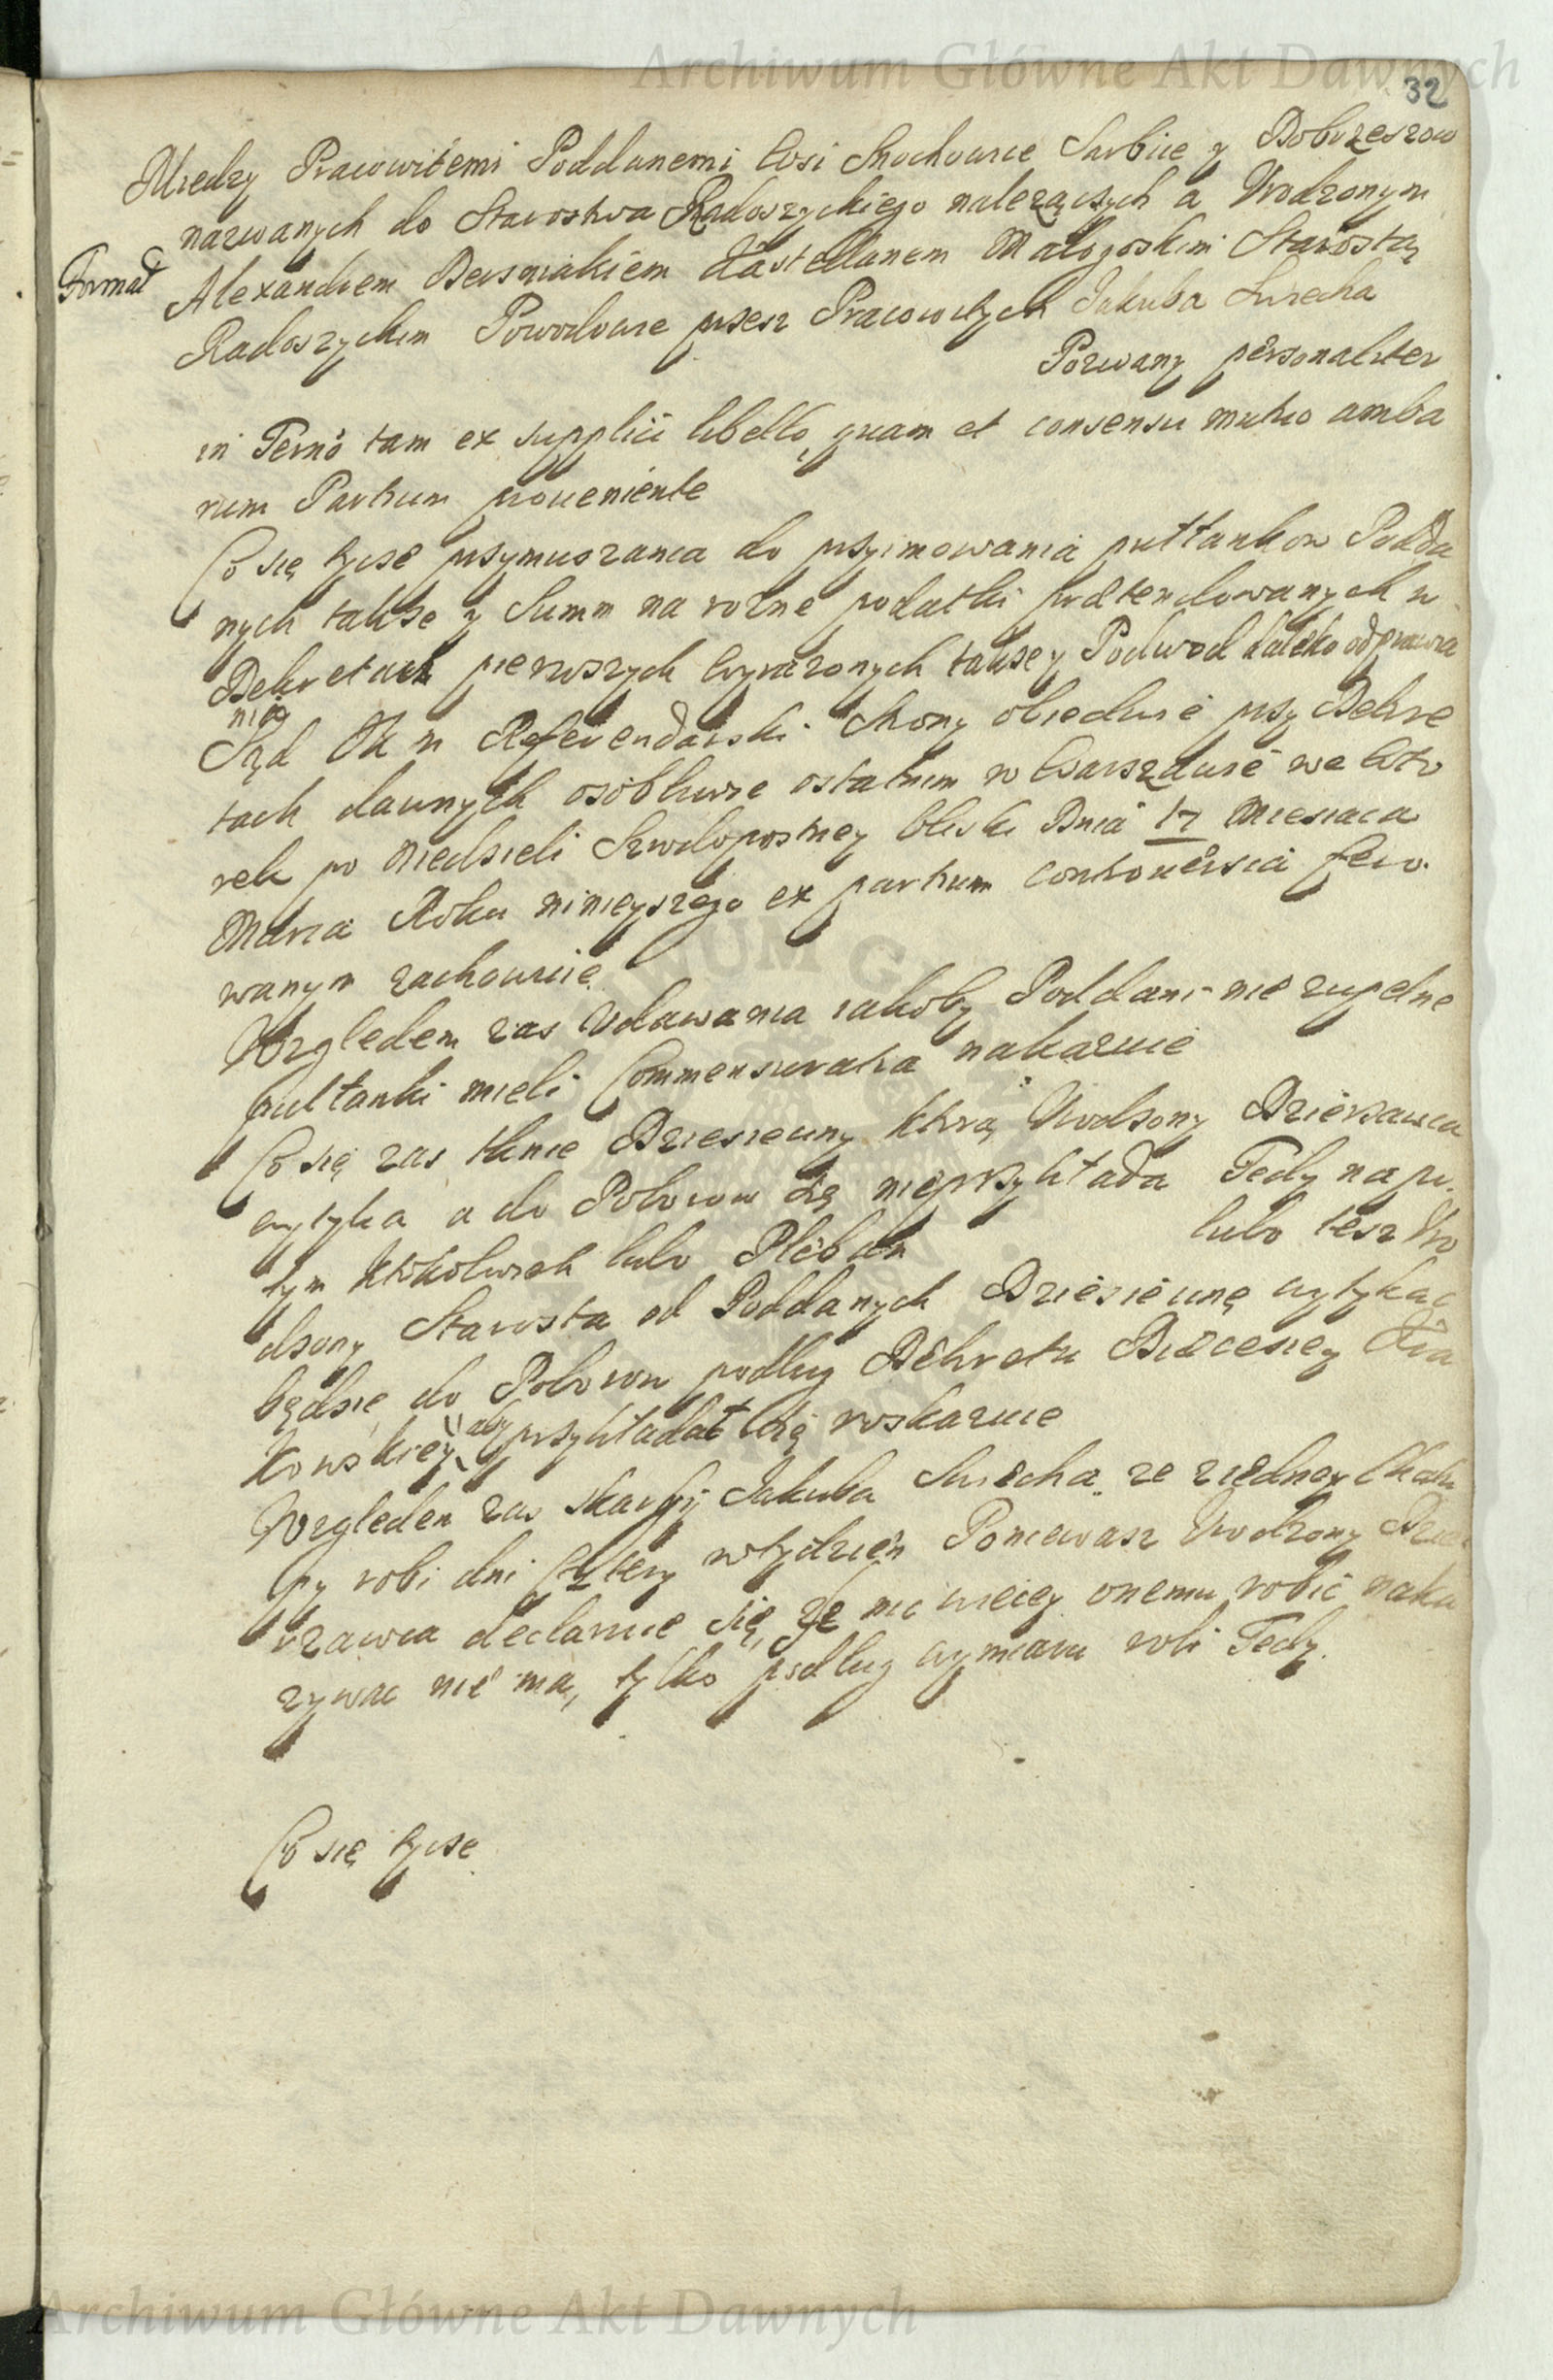 Archiwum Główne Akt Dawnych
32
Miedzy Pracowitemi Poddanemi Wsi Smochowice Sarbice y Dobrzeszow
nazwanych do Starostwa Radoszyckiego nalezących a Urodzonym
Format
Alexandrem Bersniakiem Kasztellanem Małogoskim Starostą
Radoszyckim Powodowie przesz Pracowitych Jakuba Surecha
Pozwany personaliter
in Termo tam ex supplici libello, quam et consensu mutuo amba
rum Partium proueniente
Co się tycse prsymuszania do prsyimowania pułtankow Podda
nych takse y Summ na rozne podatki prætendowanych w
Dekretach pierwszych wyrazonych takse y Podwod daleko odprawia
nia
Sąd JK m Referendarski Strony obiedwie prsy Dekre
tach dawnych osobliwie ostatnim w Warszawie we Wto
rek po Niedsieli Srzodopostney bliski Dnia 17 Miesiaca
Marca Roku ninieyszego ex partium controuersia fero.
wanym zachowuie
Wzgledem zas Udawania iakoby Poddani nie zupelne
pułtanki mieli Commensuratia nakazuie
Co się zas tknie Dziesieciny ktorą Urodsony Dziersawca
wytyka a do Poborow się nieprzykłada Tedy napr.
tym ktokolwiek lubo Pleban lubo tesz Uro
dsony Starosta od Poddanych Dziesiecinę wytykac
będsie do Poborow podlug Dekretu Diecesiey Kra
kowskiey aby prsykładał się roskazuie
Wzgledem zas skargi Jakuba Surecha ze ziedney Chału
py robi dni cztery wtydzien Poniewasz Urodzony Dzier
rzawca declaruie się, ze nic wiecey onemu robic naka
zywac nie ma, tylko podlug wymiaru roli Tedy.
Co się tycse
Archiwum Główne Akt Dawnych